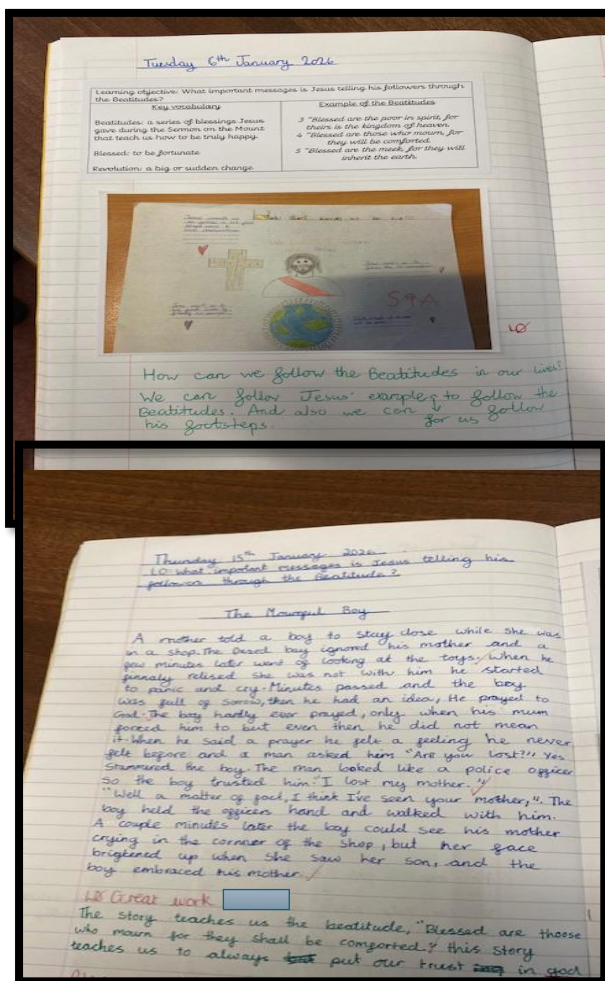 Tuesday 6th January 2026
Learning objective: What important messages is Jesus telling his followers through
the Beatitudes?
Key vocabulary
Beatitudes: a series of blessings Jesus
gave during the Sermon on the Mount
that teach us how to be truly happy.
Blessed: to be fortunate
Revolution: a big or sudden change
Example of the Beatitudes
3 "Blessed are the poor in spirit, for
theirs is the kingdom of heaven.
4 "Blessed are those who mourn, for
they will be comforted.
5 "Blessed are the meek, for they will
inherit the earth.
LO
How can we follow the Beatitudes in our lives?
We can follow Jesus' example to follow the
Beatitudes. And also we can follow
for us
his footsteps.
Thursday 15th January 2026
LO: What important messages is Jesus telling his
followers through the Beatitude?
The Mournful Boy
A mother told a boy to stay close while she was
in a shop. The boy ignored his mother and a
few minutes later went of looking at the toys. When he
finnaly relised she was not with him he started
to panic and cry. Minutes passed and the boy
was full of sorrow, then he had an idea, He prayed to
God. The boy hardly ever prayed, only when his mum
forced him to but even then he did not mean
it. When he said a prayer he felt a feeling he never
felt before and a man asked him "Are you lost?" Yes
Stammured the boy. The man looked like a police officer
so the boy trusted him. "I lost my mother."
"Well a matter of fact, I think I've seen your mother,". The
boy held the officers hand and walked with him.
A couple minutes later the boy could see his mother
crying in the cornner of the shop, but her face
brigtened up when she saw her son, and the
boy embraced his mother.
LO Great work
The story teaches us the beatitude, "Blessed are thoose
who mourn for they shall be comforted." this story
teaches us to always put our trust in god